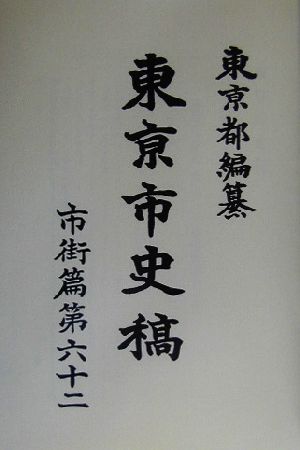 東京都編纂
東京市史稿
市街篇第六十二